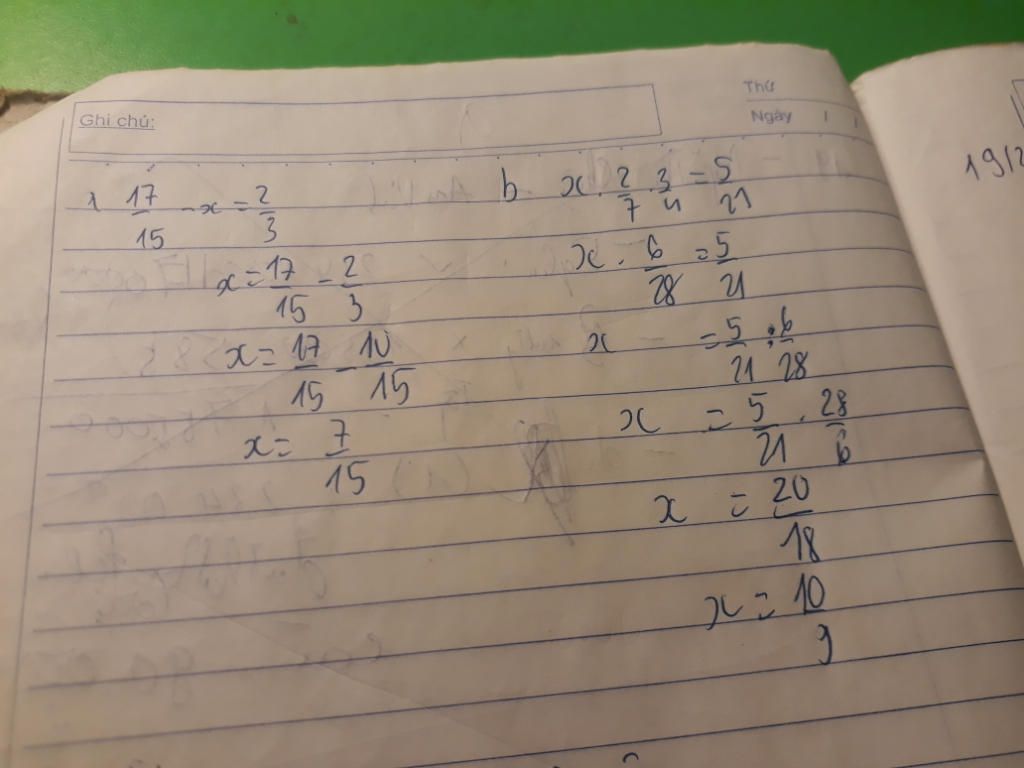 Ghi chú:
Thứ
Ngày / /
19/2
a 17/15 - x = 2/3
x = 17/15 - 2/3
x = 17/15 - 10/15
x = 7/15
b x . 2/7 . 3/4 = 5/21
x . 6/28 = 5/21
x = 5/21 : 6/28
x = 5/21 . 28/6
x = 20/18
x = 10/9